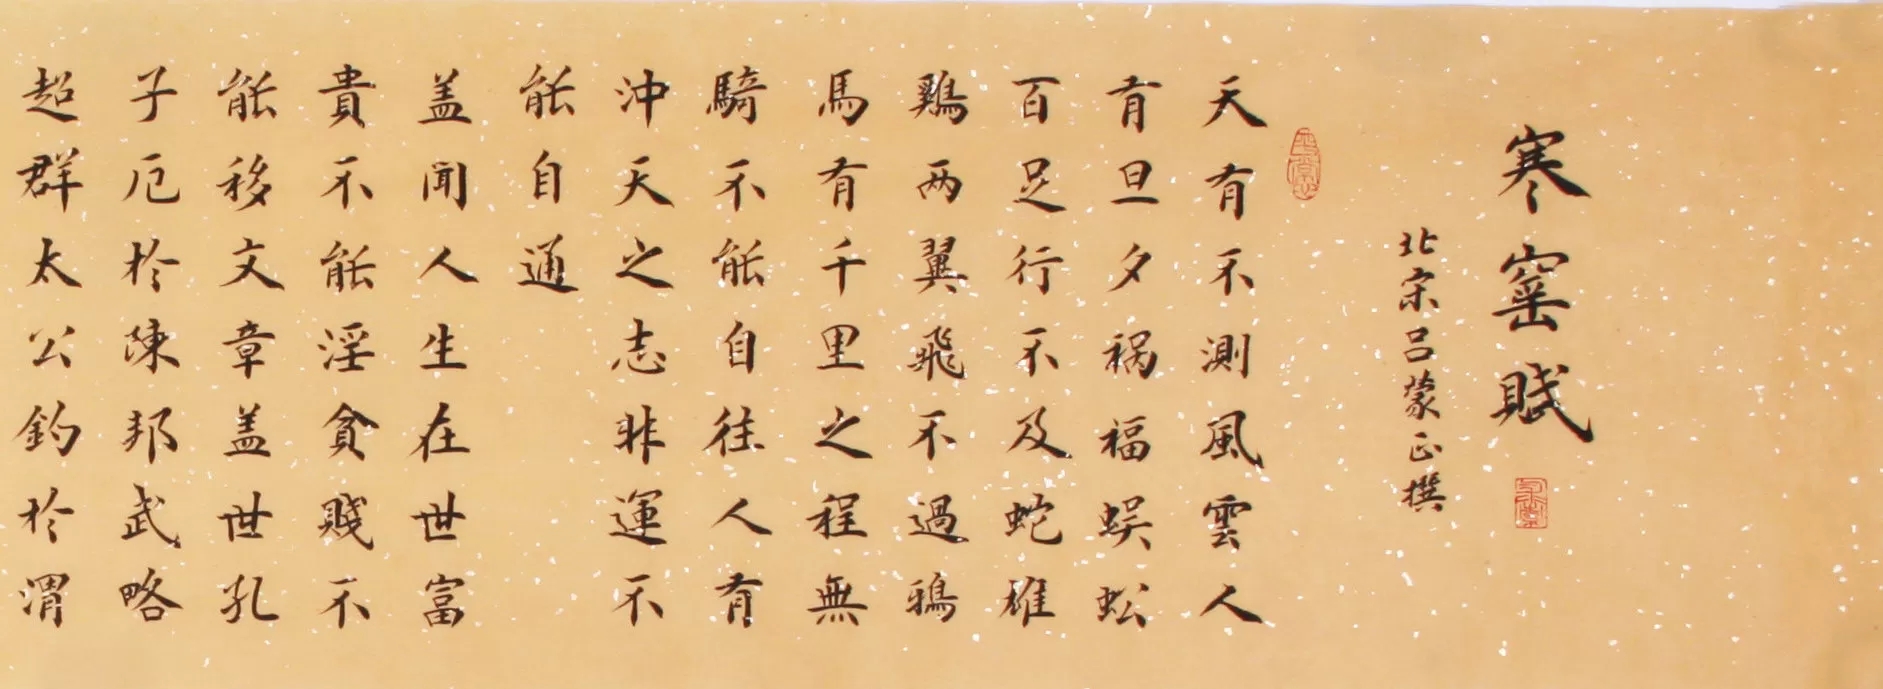 寒窰賦
北宋吕蒙正撰
天有不測風雲人
有旦夕禍福蜈蚣
百足行不及蛇雄
鷄两翼飛不過鴉
馬有千里之程無
騎不能自往人有
沖天之志非運不
能自通
盖聞人生在世富
貴不能淫貪賤不
能移文章盖世孔
子厄於陳邦武略
超群太公釣於渭